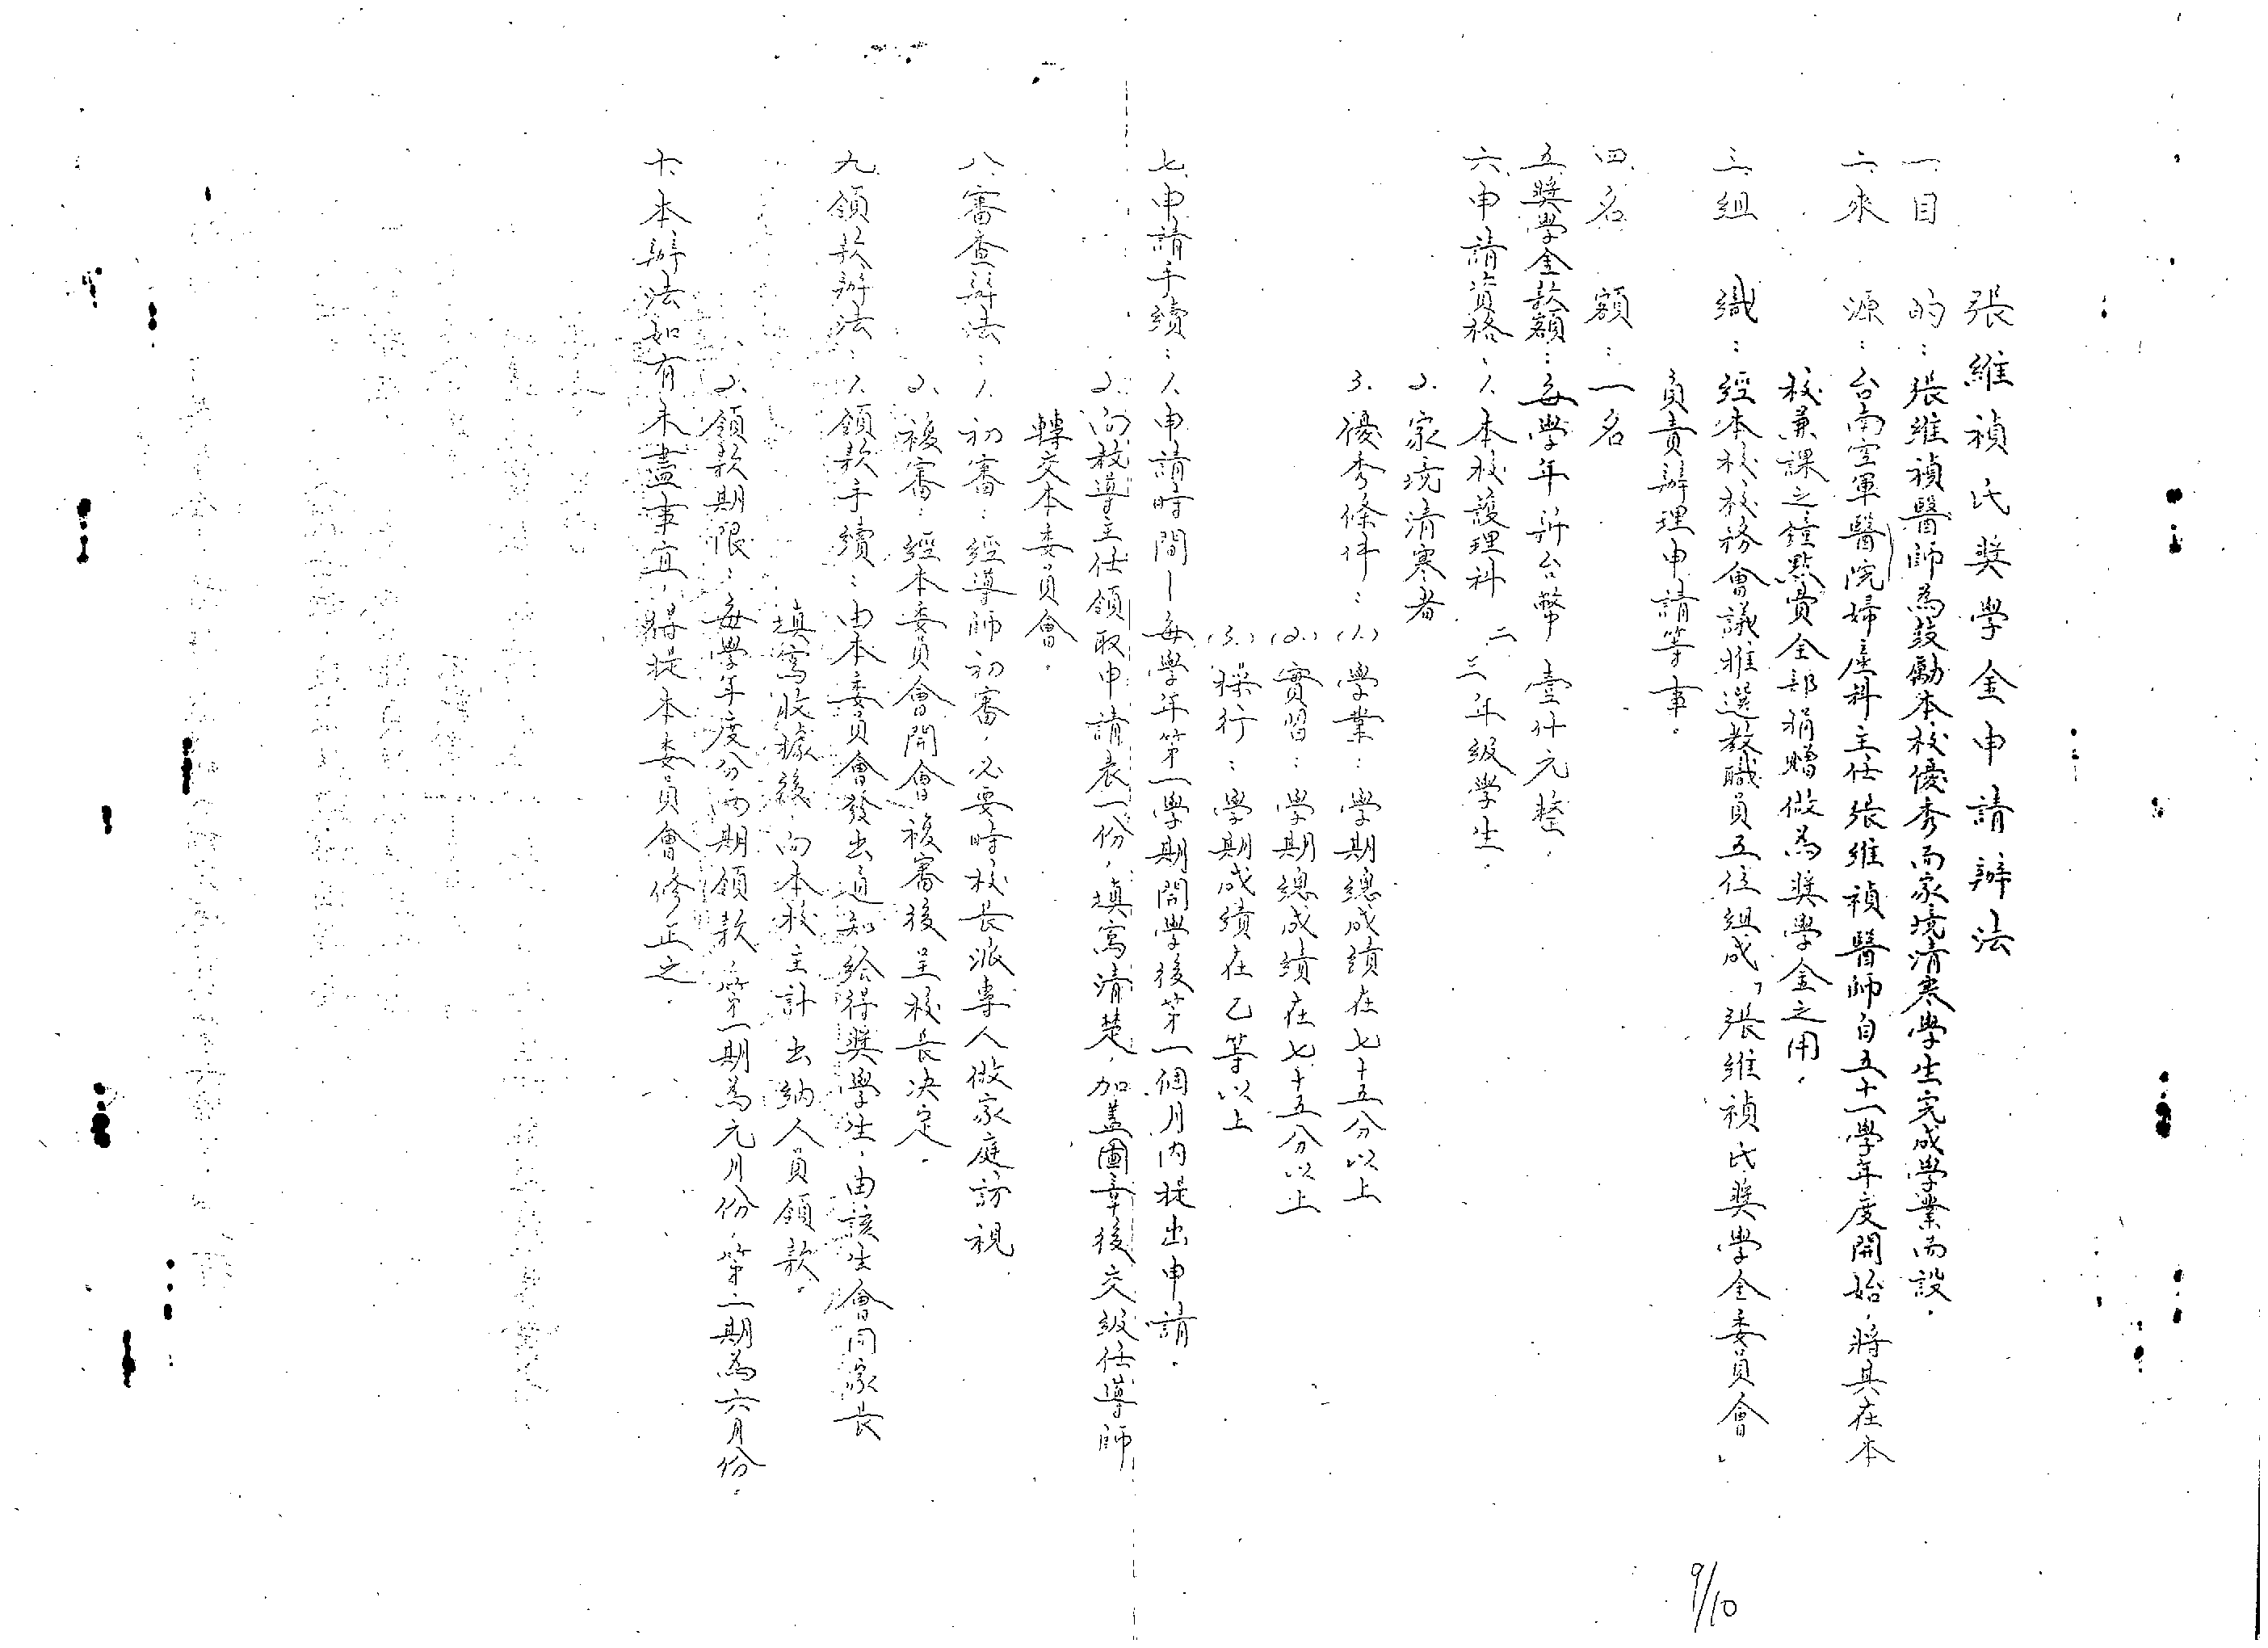 張維禎氏奬學金申請辦法
一、目　的：張維禎醫師為鼓勵本校優秀而家境清寒學生完成學業而設。
二、來　源：台南空軍醫院婦產科主任張維禎醫師自五十一學年度開始，將其在本
校兼課之鐘點費全部捐贈做為奬學金之用。
三、組　織：經本校校務會議推選教職員五位組成「張維禎氏奬學金委員會」
負責辦理申請等事。
四、名　額：一名
五、奬學金款額：每學年新台幣壹仟元整。
六、申請資格：1.本校護理科二三年級學生。
2.家境清寒者
3.優秀條件：(1.)學業：學期總成績在七十五分以上
(2.)實習：學期總成績在七十五分以上
(3.)操行：學期成績在乙等以上
七、申請手續：1.申請時間—每學年第一學期開學後第一個月內提出申請。
2.向教導主任領取申請表一份，填寫清楚，加蓋圖章後交級任導師
轉交本委員會。
八、審查辦法：1.初審：經導師初審，必要時校長派專人做家庭訪視。
2.複審：經本委員會開會複審後呈校長決定。
九、領款辦法：1.領款手續：由本委員會發出通知給得奬學生，由該生會同家長
填寫收據後，向本校主計出納人員領款。
2.領款期限：每學年度分兩期領款，第一期為元月份，第二期為六月份。
十、本辦法如有未盡事宜，得提本委員會修正之。
9/10